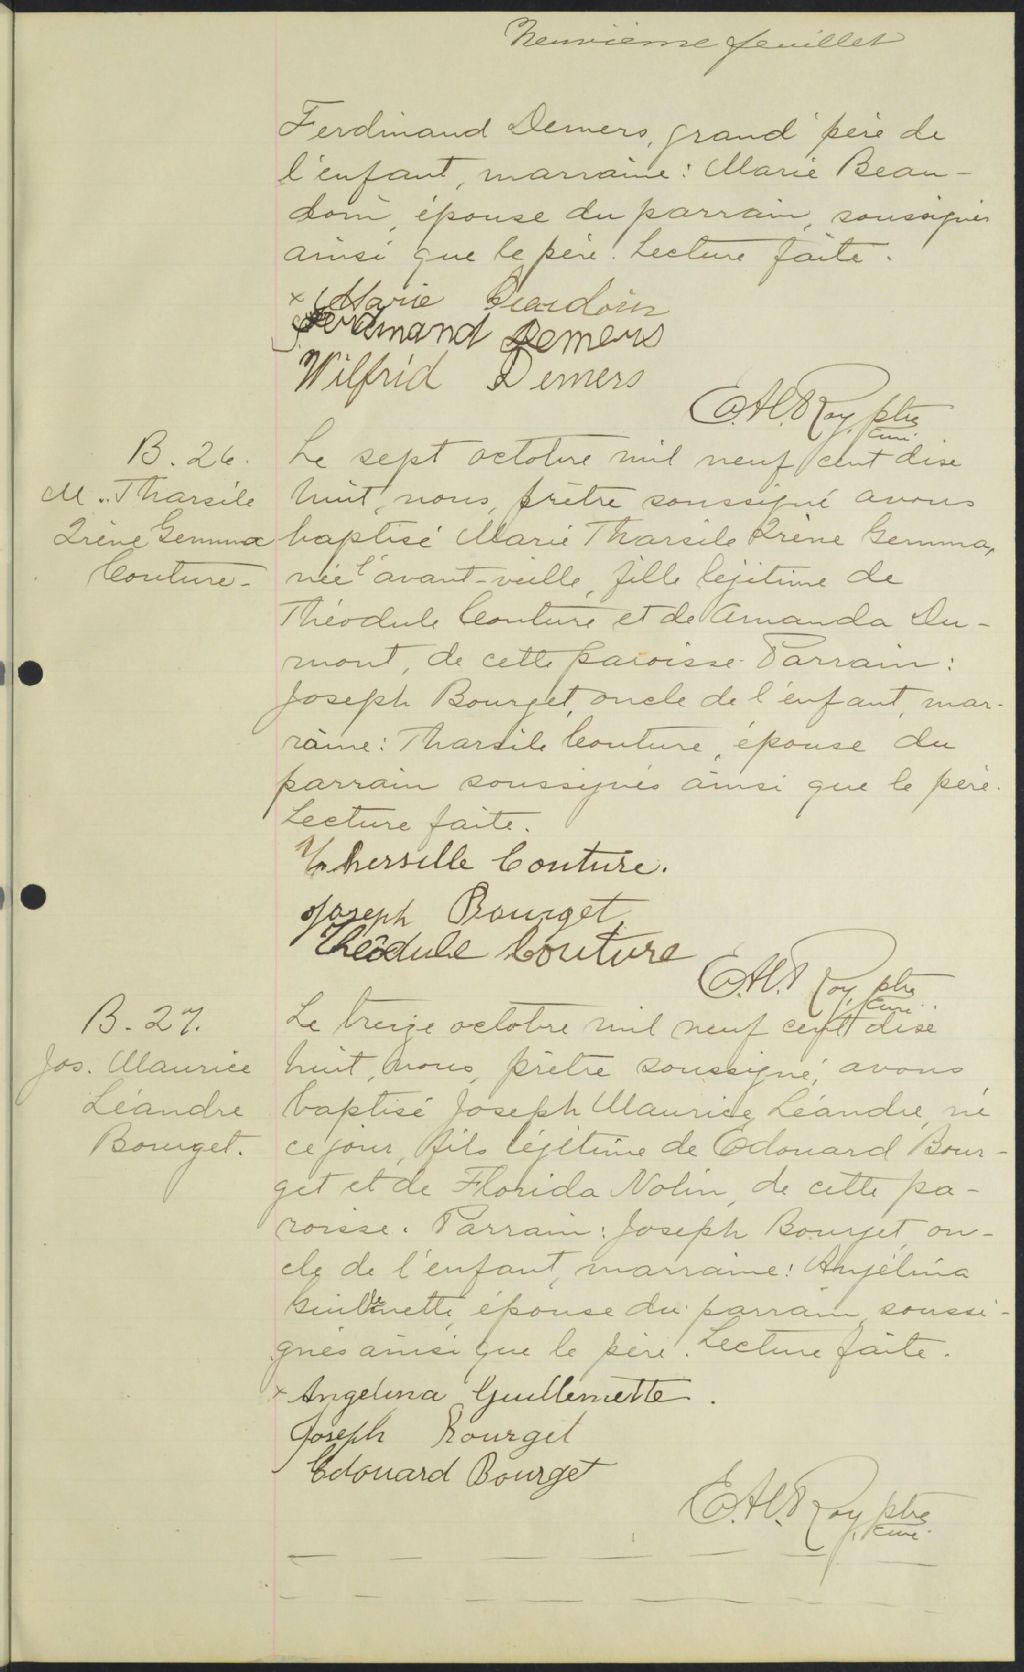 Neuvième feuillet
Ferdinand Demers, grand'père de
l'enfant, marraine: Marie Beau-
doin, épouse du parrain, soussignés
ainsi que le père. Lecture faite.
x Marie Beaudoin
Ferdinand Demers
Wilfrid Demers
E.A.Roy, ptre
curé.
B. 26.
M. Tharsile
Irène Gemma
Couture.
Le sept octobre mil neuf cent dise
huit, nous, prêtre soussigné avons
baptisé Marie Tharsile Irène Gemma,
née l'avant-veille, fille légitime de
Théodule Couture et de Amanda Du-
mont, de cette paroisse. Parrain:
Joseph Bourget, oncle de l'enfant, mar-
raine: Tharsile Couture, épouse du
parrain soussignés ainsi que le père.
Lecture faite.
Thersille Couture.
Joseph Bourget
Théodule Couture
E.A.Roy, ptre
curé.
B. 27.
Jos. Maurice
Léandre
Bourget.
Le treize octobre mil neuf cent dise
huit, nous, prêtre soussigné, avons
baptisé Joseph Maurice Léandre, né
ce jour, fils légitime de Edouard Bour-
get et de Florida Nolin, de cette pa-
roisse. Parrain: Joseph Bourget, on-
cle de l'enfant, marraine: Angélina
épouse du parrain, soussi-
gnés ainsi que le père. Lecture faite.
x Angelina Guillemette.
Joseph Bourget
Edouard Bourget
E.A.Roy, ptre
curé.